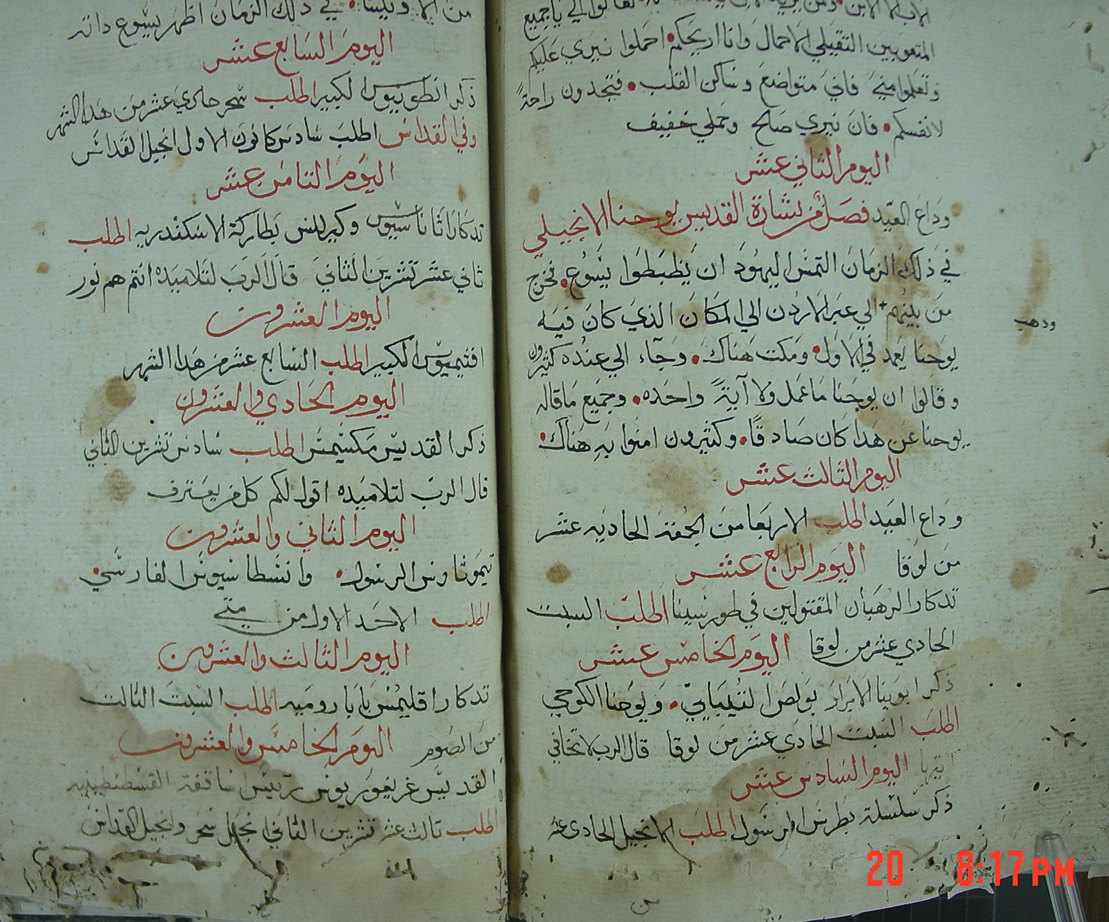 الاب الا الابن
المتعوبين الثقيلي الاحمال وانا اريحكم احملوا نيري عليكم
وتعلموا مني فاني متواضع وساكن القلب فتجدون راحةً
لانفسكم فان نيري صالح وحملي خفيف
اليوم الثاني عشر
وداع العيد فصل من بشارة القديس يوحنا الانجيلي
في ذلك الزمان التمس اليهود ان يظبطوا يسوع فخرج
من بينهم الي عبر الاردن الي المكان الذي كان فيه
وذهب
يوحنا يعمد في الاول ومكث هناك وجاء الي عنده كثيرون
وقالوا ان يوحنا ما عمل ولا آيةً واحده وجميع ما قاله
يوحنا عن هذا كان صادقًا وكثيرون امنوا به هناك
اليوم الثالث عشر
وداع العيد اطلب الاربعا من الجمعة الحاديه عشر
من لوقا اليوم الرابع عشر
تدكار الرهبان المقتولين في طور سينا اطلب السبت
الحادي عشر من لوقا اليوم الخامس عشر
ذكر ابوينا الابرار بولص التيبايي ويوحنا الكوخي
اطلب السبت الحادي عشر من لوقا قال الرب لا تخافي
ايتها اليوم السادس عشر
ذكر سلسلة بطرس الرسول اطلب الانجيل الحادي عشر
في ذلك الزمان اظهر يسوع ذاته
اليوم السابع عشر
ذكر انطونيوس الكبير اطلب سحر حادي عشر من هذا الشهر
وفي القداس اطلب سادس كانون الاول انجيل القداس
اليوم الثامن عشر
تدكار اثاناسيوس وكيرلس بطاركة الاسكندريه اطلب
ثاني عشر تشرين الثاني قال الرب لتلاميذه انتم هم نور
اليوم العشرون
افتيميوس الكبير اطلب السابع عشر من هذا الشهر
اليوم الحادي والعشرون
ذكر القديس مكسيمس اطلب سادس تشرين الثاني
قال الرب لتلاميده اقول لكم كل من يعترف
اليوم الثاني والعشرون
تيموثاوس الرسول وانسطاسيوس الفارسي
اطلب الاحد الاول من متي
اليوم الثالث والعشرين
تدكار اقليمس بابا روميه اطلب السبت الثالث
من الصوم اليوم الخامس والعشرون
القديس غريغوريوس رييس اساقفة القسطنطينيه
اطلب ثالث عشر تشرين الثاني انجيل سحر وانجيل القداس
20 8:17 PM